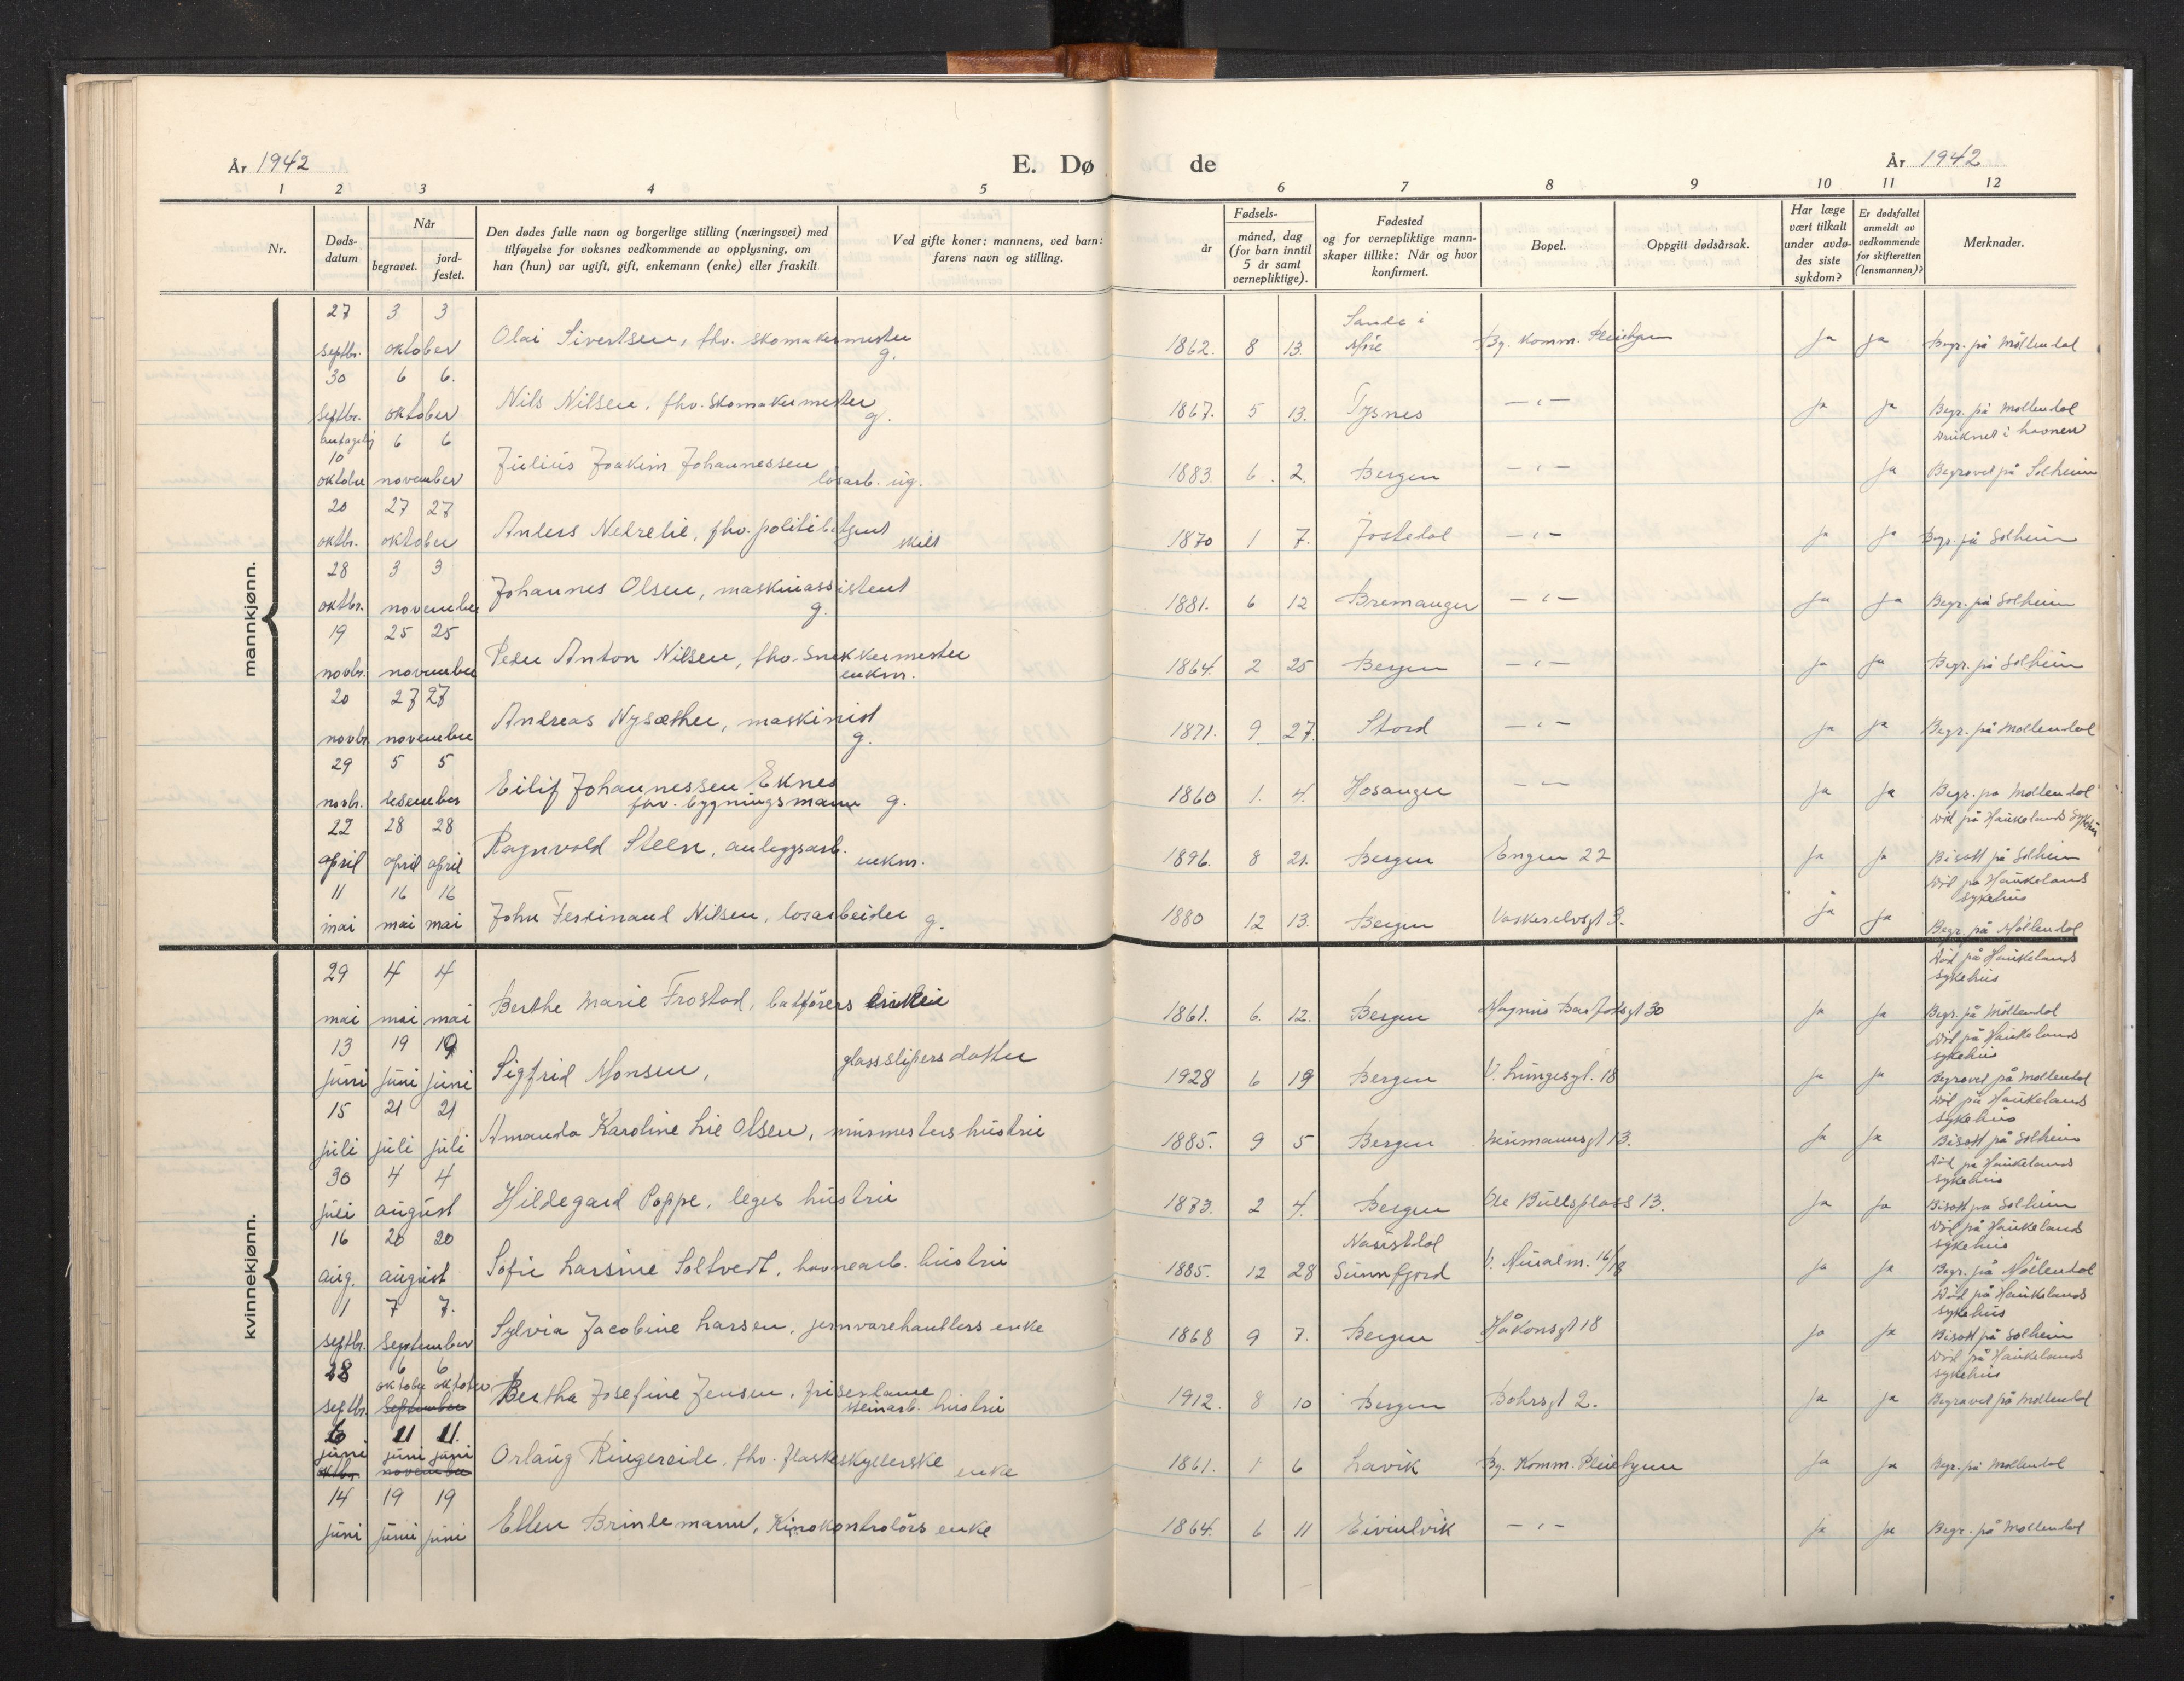 År 1942
E. Dø de
År 1942
1 2 3 4 5 6 7 8 9 10 11 12
Nr.
Døds-
datum
Når
begravet.
jord-
festet.
Den dødes fulle navn og borgerlige stilling (næringsvei) med
tilføyelse for voksnes vedkommende av opplysning, om
han (hun) var ugift, gift, enkemann (enke) eller fraskilt
Ved gifte koner: mannens, ved barn:
farens navn og stilling.
år
Fødsels-
måned, dag
(for barn inntil
5 år samt
vernepliktige).
Fødested
og for vernepliktige mann-
skaper tillike: Når og hvor
konfirmert.
Bopel.
Oppgitt dødsårsak.
Har læge
vært tilkalt
under avdø-
des siste
sykdom?
Er dødsfallet
anmeldt av
vedkommende
for skifteretten
(lensmannen)?
Merknader.
mannkjønn.
27 3 3 Sande i
septbr. oktober Olai Sivertsen, fhv. skomakermester g. 1862. 8 13. Møre Bg. Komm. Pleiehjem ja ja Begr. på Møllendal
30 6 6.
septbr. oktober Nils Nilsen, fhv. skomakermester g. 1867. 5 13. Tysnes — " — ja ja Begr. på Møllendal
antagelig 6 6 druknet i havnen
10
oktober november Julius Joakim Johannessen løsarb. ug. 1883. 6. 2. Bergen — " — ja Begravet på Solheim
20 27 27
oktbr. oktober Anders Nedrelie, fhv. politibetjent skilt 1870 1 7. Jostedal — " — ja ja Begr. på Solheim
28 3 3
oktbr. november Johannes Olsen, maskinassistent g. 1881. 6 12 Bremanger — " — ja ja Begr. på Solheim
19 25 25
novbr. november Peder Anton Nilsen, fhv. Snekkermester enkm. 1864. 2 25 Bergen — " — ja ja Begr. på Solheim
20 27 27
novbr. november Andreas Nysæther, maskinist g. 1871. 9 27. Stord — " — ja ja Begr. på Møllendal
29 5 5
novb. desember Eilif Johannessen Eknes fhv. bygningsmann g. 1860 1. 4. Hosanger — " — ja ja Begr. på Møllendal
22 28 28 død på Haukelands Sykehus
april april april Ragnvald Steen, anleggsarb. enkm. 1896. 8 21. Bergen Engen 22 ja ja Bisatt på Solheim
11 16 16 død på Haukelands
sykehus
mai mai mai John Ferdinand Nilsen, løsarbeider g. 1880 12 13. Bergen Vaskerelvsgt 3. ja ja Begr. på Møllendal
kvinnekjønn.
29 4 4 død på Haukelands
sykehus
mai mai mai Berthe Marie Frostad, båtførers enke 1861. 6. 12. Bergen Magnus Barfotsgt 30 ja ja Begr. på Møllendal
13 19 19 død på Haukelands
sykehus
juni juni juni Sigfrid Monsen, glasslipers datter 1928 6 19 Bergen V. Lungesgt. 18 ja ja Begravet på Møllendal
15 21 21 død på Haukelands
sykehus
juli juli juli Amanda Karoline Lie Olsen, murmesters hustru 1885. 9 5 Bergen 13. ja ja Bisatt på Solheim
30 4 4 død på Haukelands
sykehus
juli august Hildegard Poppe, leges hustru 1873. 2 4. Bergen Ole Bullsplass 13. ja ja Bisatt på Solheim
16 20 20 Naustdal død på Haukelands
sykehus
aug. august Sofie Larsine Soltvedt, havnearb. hustru 1885. 12 28 Sunnfjord V. Muralm. 16/18 ja ja Begr. på Møllendal
1 7 7. død på Haukelands
sykehus
septbr. September Sylvia Jacobine Larsen, jernvarehandlers enke 1868 9 7. Bergen Håkonsgt 18 ja ja Bisatt på Solheim
28 6 6 død på Haukelands
oktober oktober sykehus
septbr. september Bertha Josefine Jensen, friserdame steinarb. hustru 1912. 8 10 Bergen Bohrsgt 2. ja ja Begravet på Møllendal
6 11 11.
juni juni juni
oktbr. november Orlaug Ringereide, fhv. flaskeskyllerske enke 1861. 1 6 Lavik Bg. Komm. Pleiehjem ja ja Begr. på Møllendal
14 19 19
juni juni juni Ellen Brinkmann, Kinokontrolørs enke 1864. 6 11 Eivindvik — " — ja ja Begr. på Møllendal